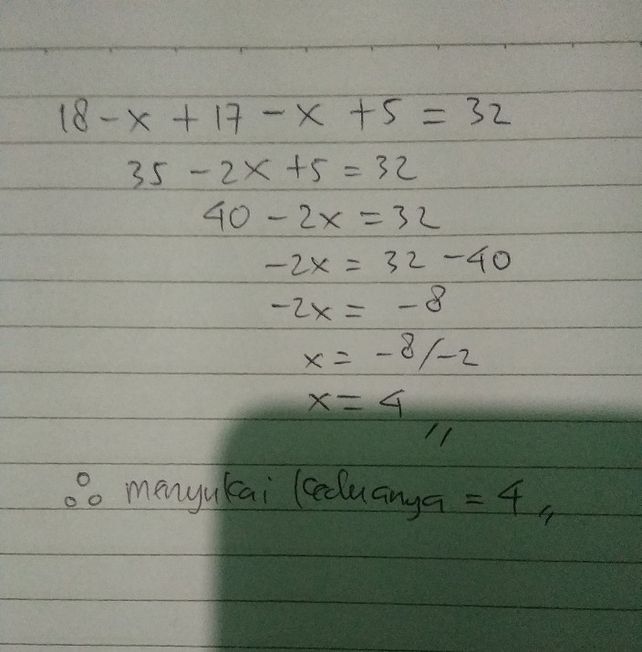 18 - x + 17 - x + 5 = 32
35 - 2x + 5 = 32
40 - 2x = 32
-2x = 32 - 40
-2x = -8
x = -8/-2
x = 4 //
∴ menyukai keduanya = 4 //